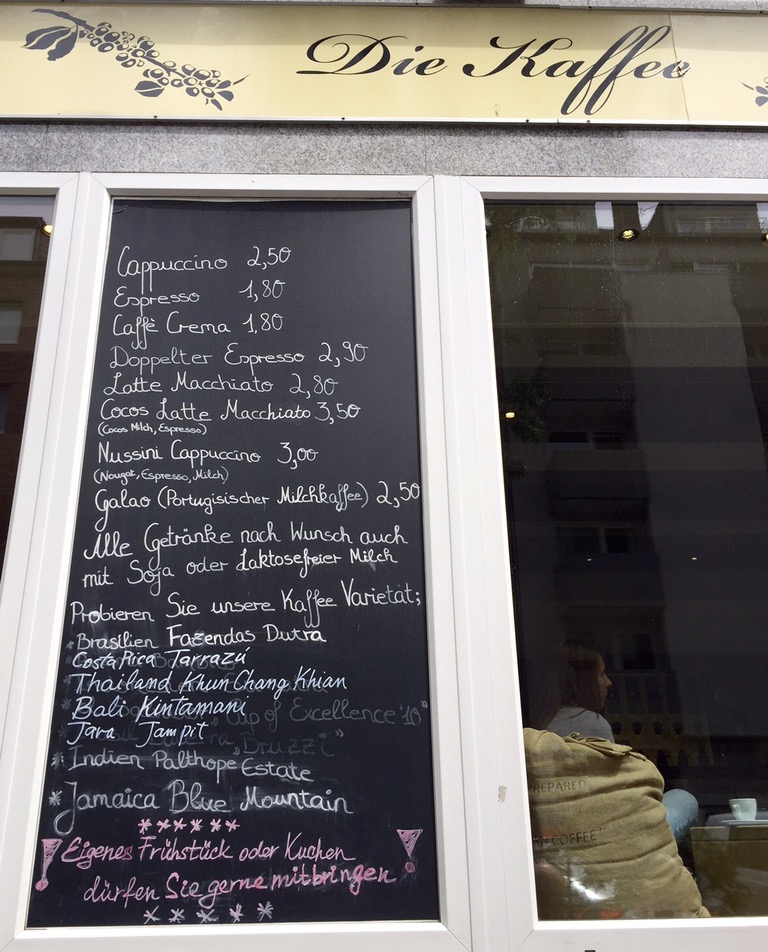 Die Kaffee
Cappuccino 2,50
Espresso 1,80
Caffè Crema 1,80
Doppelter Espresso 2,90
Latte Macchiato 2,80
Cocos Latte Macchiato 3,50
(Cocos Milch, Espresso)
Nussini Cappuccino 3,00
(Nougat, Espresso, Milch)
Galao (Portugisischer Milchkaffee) 2,50
Alle Getränke nach Wunsch auch
mit Soja oder Laktosefreier Milch
Probieren Sie unsere Kaffee Varietät;
*Brasilien Fazendas Dutra
Costa Rica Tarrazú
*Thailand Khun Chang Khian
Bali Kintamani
Cup of Excellence '10"
Java Jampit
"Bruzzi"
*Indien Palthope Estate
*Jamaica Blue Mountain
******
Eigenes Frühstück oder Kuchen
dürfen Sie gerne mitbringen
*****
PREPARED
COFFEE"